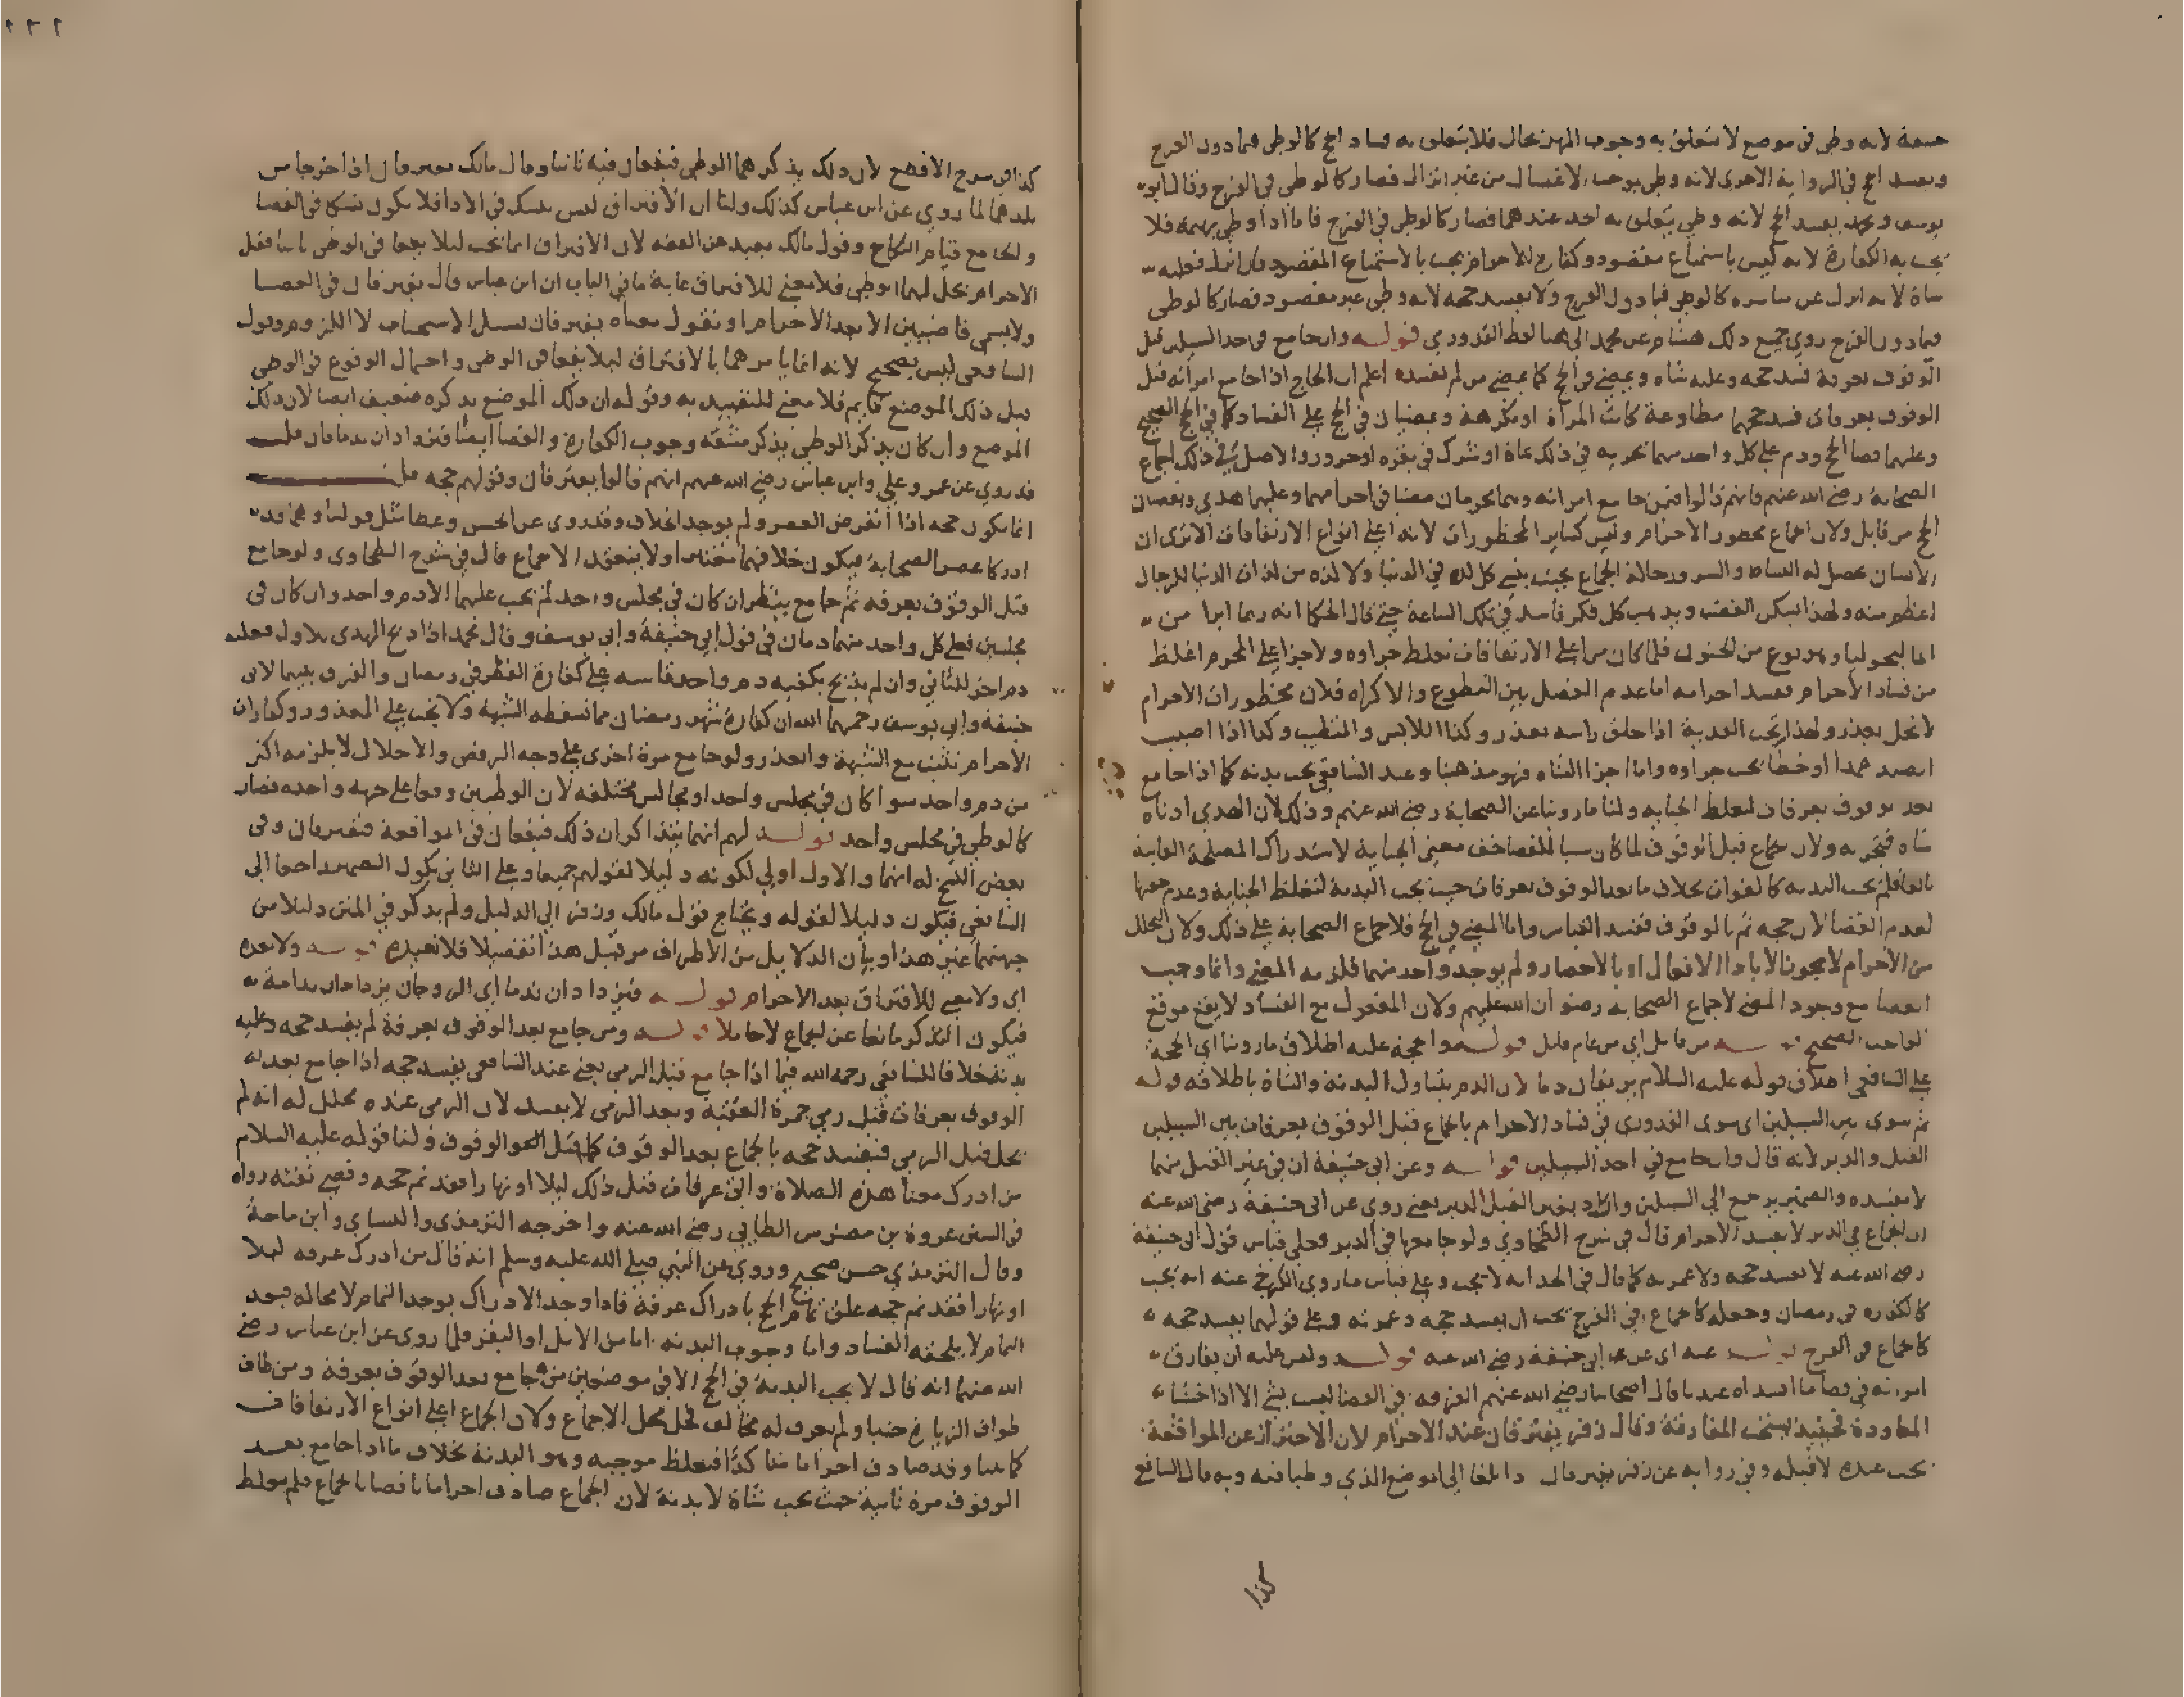 لانه وطي في موضع لا يتعلق به وجوب المهر بحال فلا يتعلق به فساد الحج كالوطي فيما دون الفرج
ويفسد الحج في الرواية الاخرى لانه وطي يوجب الاغتسال من غير انزال فصار كالوطي في الفرج وقال ابو
يوسف ومحمد يفسد الحج لانه وطي يتعلق به الحد عندهما فصار كالوطي في الفرج فاما اذا وطي بهيمة فلا
يجب به الكفارة لانه ليس باستمتاع مقصود وكفارة الاحرام يجب بالاستمتاع المقصود فان انزل فعليه
شاة لانه انزل عن مباشرة كالوطي فيما دون الفرج ولا يفسد حجه لانه وطي غير مقصود فصار كالوطي
فيما دون الفرج روي جميع ذلك هشام عن محمد الى هنا لفظ القدوري قوله وان جامع في احد السبيلين قبل
الوقوف بعرفة فسد حجه وعليه شاه ويمضي في الحج كما يمضي من لم يفسده اعلم ان الحاج اذا جامع امراته قبل
الوقوف بعرفات فسد حجهما مطاوعة كانت المراة او مكرهة ويمضيان في الحج على الفساد كما في الحج الصحيح
وعليهما قضا الحج ودم على كل واحد منهما يجزيه في ذلك شاة او شرك في بقرة او جزور والاصل في ذلك اجماع
الصحابة رضي الله عنهم فانهم قالوا فيمن جامع امراته وهما محرمان مضيا في احرامهما وعليهما هدي ويقضيان
الحج من قابل ولان الجماع محظور الاحرام وليس كساير المحظورات لانه اعلى انواع الارتفاقات الا ترى ان
الانسان يحصل له النشاط والسرور وحالة الجماع بحيث ينسى كل لذة في الدنيا ولا لذة من لذات الدنيا للرجال
اعظم منه ولهذا يسكن الغضب ويذهب كل فكر فاسد في تلك الساعة حتى قال الحكما انه ربما ابرا من
الماليخوليا وهو نوع من الجنون فلما كان من اعلى الارتفاقات تغلظ جزاوه ولا جزا على المحرم اغلظ
من فساد الاحرام ففسد احرامه اما عدم الفصل بين التطوع والاكراه فلان محظورات الاحرام
لا تحل بعذر ولهذا تجب الفدية اذا حلق راسه بعذر وكذا اللابس والمتطيب وكذا اذا اصيب
الصيد عمدا او خطا يجب جزاوه واما اجزا الشاه فهو مذهبنا وعند الشافعي يجب بدنه كما اذا جامع
بعد الوقوف بعرفات لتغلظ الجناية ولنا ما روينا عن الصحابة رضي الله عنهم وذلك لان الهدي ادناه
شاه فيجزيه ولان الجماع قبل الوقوف لما كان سببا للقضا خف معنى الجناية لاستدراك المصلحة الفايتة
لعدم القضا لان حجه تم بالوقوف ففسد القياس واما المضي في الحج فلاجماع الصحابة على ذلك ولان التحلل
من الاحرام لا يكون الا باداء الافعال او بالاحصار ولم يوجد واحد منهما فلزمه المضي وانما وجب
القضا مع وجود المضي لاجماع الصحابه رضوان الله عليهم ولان المفعول مع الفساد لا يقع موقع
الواجب الصحيح قوله من قابل اي من عام قابل قوله والحجة عليه اطلاق ما روينا اي الحجة
على الشافعي اطلاق قوله عليه السلام يريقان دما لان الدم يتناول البدنة والشاة باطلاقه قوله
ثم سوى بين السبيلين اي سوى القدوري في فساد الاحرام بالجماع قبل الوقوف بعرفات بين السبيلين
القبل والدبر لانه قال وان جامع في احد السبيلين قوله وعن ابي حنيفة ان في غير القبل منهما
لا يفسده والضمير يرجع الى السبيلين واراد بغير القبل الدبر يعني روي عن ابي حنيفة رضي الله عنه
ان الجماع في الدبر لا يفسد الاحرام قال في شرح الطحاوي ولو جامعها في الدبر فعلى قياس قول ابي حنيفة
رضي الله عنه لا يفسد حجه ولا عمرته كما قال في الحد انه لا يجب وعلى قياس ما روي الكرخي عنه انه يجب
كالكفارة في رمضان وجعله كالجماع في الفرج يجب ان يفسد حجه وعمرته وعلى قولهما يفسد حجه
كالجماع في الفرج قوله عنه اي عن ابي حنيفة رضي الله عنه قوله وليس عليه ان يفارق
امراته في قضا ما افسداه عندنا قال اصحابنا رضي الله عنهم الفرقه في القضا ليست بشي الا اذا خشيا
المعاودة فحينيذ يستحب المفارقة وقال زفر يفترقان عند الاحرام لان الاحتراز عن المواقعة
يجب عنده لا قبله وفي رواية عن زفر يفترقان اذا بلغا الى الموضع الذي وطيا فيه وبه قال الشافعي
كذا
١٢١
كذا في شرح الاقطع لان ذلك يذكرهما الوطي فيفعلان فيه ثانيا وقال مالك يفترقان اذا خرجا من
بلدهما لما روي عن ابن عباس كذلك ولنا ان الافتراق ليس بنسك في الادا فلا يكون نسكا في القضا
والجامع قيام النكاح وقول مالك بعيد عن الفقه لان الافتراق انما يجب ليلا يقعا في الوطي ثانيا فقبل
الاحرام يحل لهما الوطي فلا معنى للافتراق غاية ما في الباب ان ابن عباس قال يفترقان في القضا
السافعي ليس بصحيح لانه انما يامرهما بالافتراق ليلا يقعا في الوطي واحتمال الوقوع في الوطي
قبل ذلك الموضع قايم فلا معنى للتقييد به وقوله ان ذلك الموضع يذكره ضعيف ايضا لان ذلك
الموضع وان كان يذكر الوطي يذكر مشقة وجوب الكفارة والقضا ايضا فيزدادان ندما فان قلت
قد روي عن عمر وعلي وابن عباس رضي الله عنهم انهم قالوا يفترقان وقولهم حجه قلت
انما يكون حجه اذا انقرض العصر ولم يوجد الخلاف وقد روى عن الحسن وعطا مثل قولنا وهما قد
ادركا عصر الصحابة فيكون خلافهما معتبرا ولا ينعقد الاجماع قال في شرح الطحاوي ولو جامع
قبل الوقوف بعرفه ثم جامع ينظر ان كان في مجلس واحد لم يجب عليهما الا دم واحد وان كان في
مجلسين فعلى كل واحد منهما دمان في قول ابي حنيفة وابي يوسف وقال محمد اذا ذبح الهدي للاول فعليه
دم اخر للثاني وان لم يذبح يكفيه دم واحد قاسه على كفارة الفطر في رمضان والفرق بينهما لابي
حنيفة وابي يوسف رحمهما الله ان كفارة شهر رمضان مما تسقطه الشبهة ولا يجب على المعذور وكفارات
الاحرام تثبت مع الشبهة والعذر ولو جامع مرة اخرى على وجه الرفض والاحلال لا يلزمه اكثر
من دم واحد سوا كان في مجلس واحد او مجالس مختلفة لان الوطيين وقعا على جهة واحدة فصار
كالوطي في مجلس واحد قوله لهم انهما يتذاكران ذلك فيقعان في المواقعة فيفترقان وفي
بعض النسخ له انهما والاول اولى لكونه دليلا لقولهم جميعا وعلى الثاني يكون الضمير راجعا الى
الشافعي فيكون دليلا لقوله ويحتاج قول مالك وزفر الى الدليل ولم يذكر في المتن دليلا من
جهتهما غير هذا وبيان الدلايل من الاطراف مر قبل هذا تفصيلا فلا نعيده قوله ولا بعده
اي ولا معنى للافتراق بعد الاحرام قوله فيزدادان ندما اي الزوجان يزدادان ندامة
فيكون التذكر مانعا عن الجماع لا حاملا قوله ومن جامع بعد الوقوف بعرفة لم يفسد حجه وعليه
بدنة خلافا للشافعي رحمه الله فيما اذا جامع قبل الرمي يعني عند الشافعي يفسد حجه اذا جامع بعد
الوقوف بعرفات قبل رمي جمرة العقبة وبعد الرمي لا يفسد لان الرمي عنده محلل له انه لم
يحل قبل الرمي فيفسد حجه بالجماع بعد الوقوف كما قبل الوقوف ولنا قوله عليه السلام
من ادرك معنا هذه الصلاة واتى عرفات قبل ذلك ليلا او نهارا فقد تم حجه وقضى تفثه رواه
في السنن عروة بن مضرس الطائي رضي الله عنه واخرجه الترمذي والنساي وابن ماجة
وقال الترمذي حسن صحيح وروي عن النبي صلى الله عليه وسلم انه قال من ادرك عرفه ليلا
او نهارا فقد تم حجه علق تمام الحج بادراك عرفة فاذا وجد الادراك يوجد التمام لا محالة فبعد
التمام لا يلحقه الفساد واما وجوب البدنه اما من الابل او البقر فلما روي عن ابن عباس رضي
الله عنهما انه قال لا يجب البدنة في الحج الا في موضعين من جامع بعد الوقوف بعرفة ومن طاف
طواف الزيارة جنبا ولم يعرف له مخالف فحل محل الاجماع ولان الجماع اعلى انواع الارتفاقات
كما بينا وقد صادف احراما متاكدا فتغلظ موجبه وهو البدنة بخلاف ما اذا جامع بعد
الوقوف مرة ثانية حيث يجب شاة لا بدنة لان الجماع صادف احراما ناقصا بالجماع فلم يتغلظ